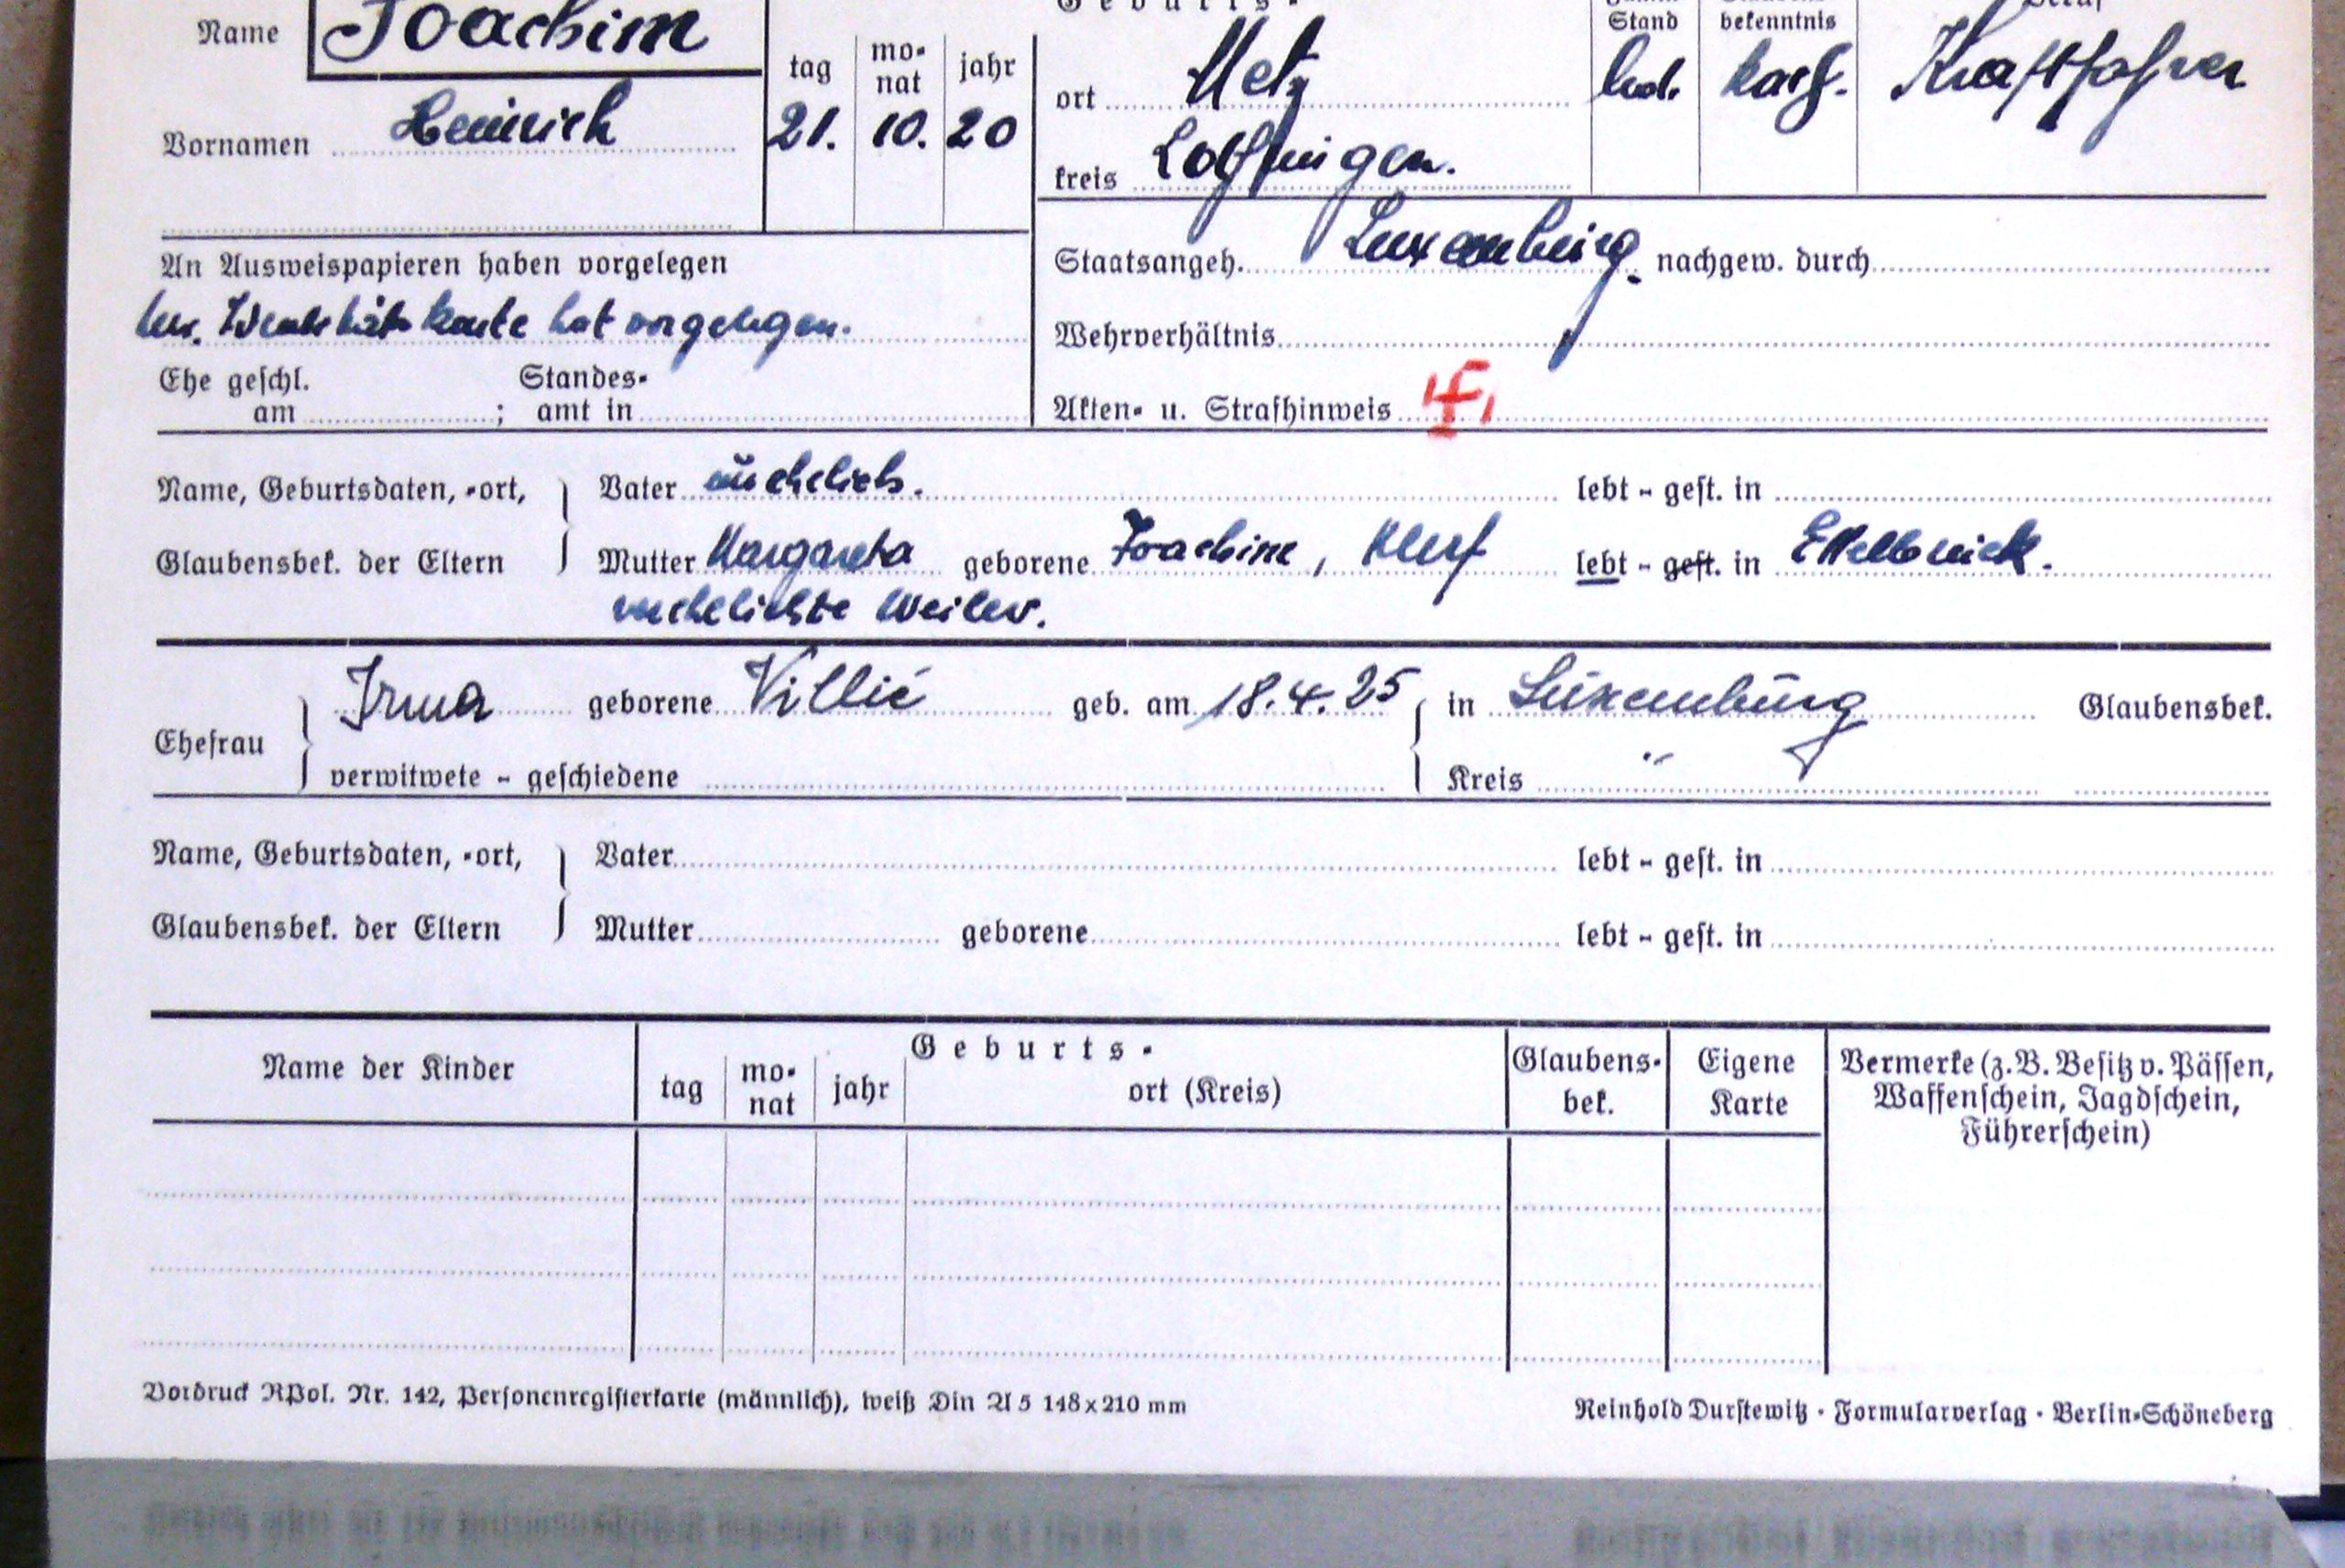 Geburts-
Name Joachim
Stand
bekenntnis
Beruf
tag
mo-
nat
jahr
ort Metz
led.
kath.
Kraftfahrer
Vornamen Heinrich
21. 10. 20
kreis Lothringen.
An Ausweispapieren haben vorgelegen
Staatsangeh. Luxemburg. nachgew. durch
lux. Identitätskarte hat vorgelegen.
Wehrverhältnis
Ehe geschl.
am ; Standes-
amt in
Akten- u. Strafhinweis
Name, Geburtsdaten, -ort,
Vater unehelich. lebt - gest. in
Glaubensbek. der Eltern
Mutter Margareta geborene Joachim, Klerf lebt - gest. in Ettelbrück.
verehelichte Weiler.
Irma geborene Villié geb. am 18.4.25 in Luxemburg Glaubensbek.
Ehefrau
verwitwete - geschiedene Kreis "
Name, Geburtsdaten, -ort,
Vater lebt - gest. in
Glaubensbek. der Eltern
Mutter geborene lebt - gest. in
Name der Kinder
Geburts-
tag
mo-
nat
jahr
ort (Kreis)
Glaubens-
bek.
Eigene
Karte
Vermerke (z.B. Besitz v. Pässen,
Waffenschein, Jagdschein,
Führerschein)
Vordruck RPol. Nr. 142, Personenregisterkarte (männlich), weiß Din A 5 148x210 mm
Reinhold Durstewitz · Formularverlag · Berlin-Schöneberg